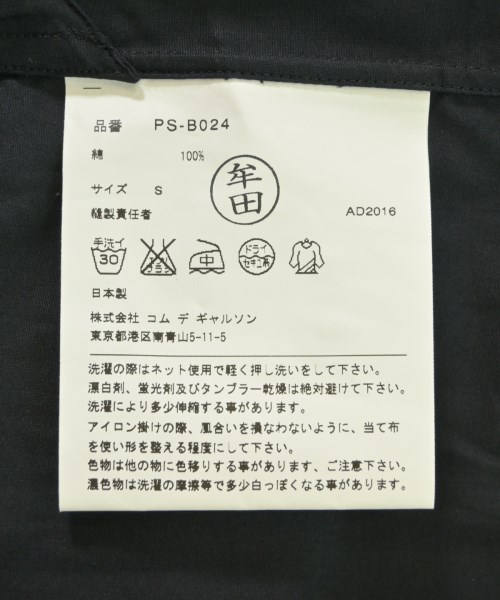 品番 PS-B024
綿 100%
サイズ S
縫製責任者
牟田
AD2016
手洗イ
30
エンソ
サラシ
中
ドライ
セキユ系
日本製
株式会社 コム デ ギャルソン
東京都港区南青山5-11-5
洗濯の際はネット使用で軽く押し洗いをして下さい。
漂白剤、蛍光剤及びタンブラー乾燥は絶対避けて下さい。
洗濯により多少伸縮する事があります。
アイロン掛けの際、風合いを損なわないように、当て布
を使い形を整える程度にして下さい。
色物は他の物に色移りする事があります、ご注意下さい。
濃色物は洗濯の摩擦等で多少白っぽくなる事があります。